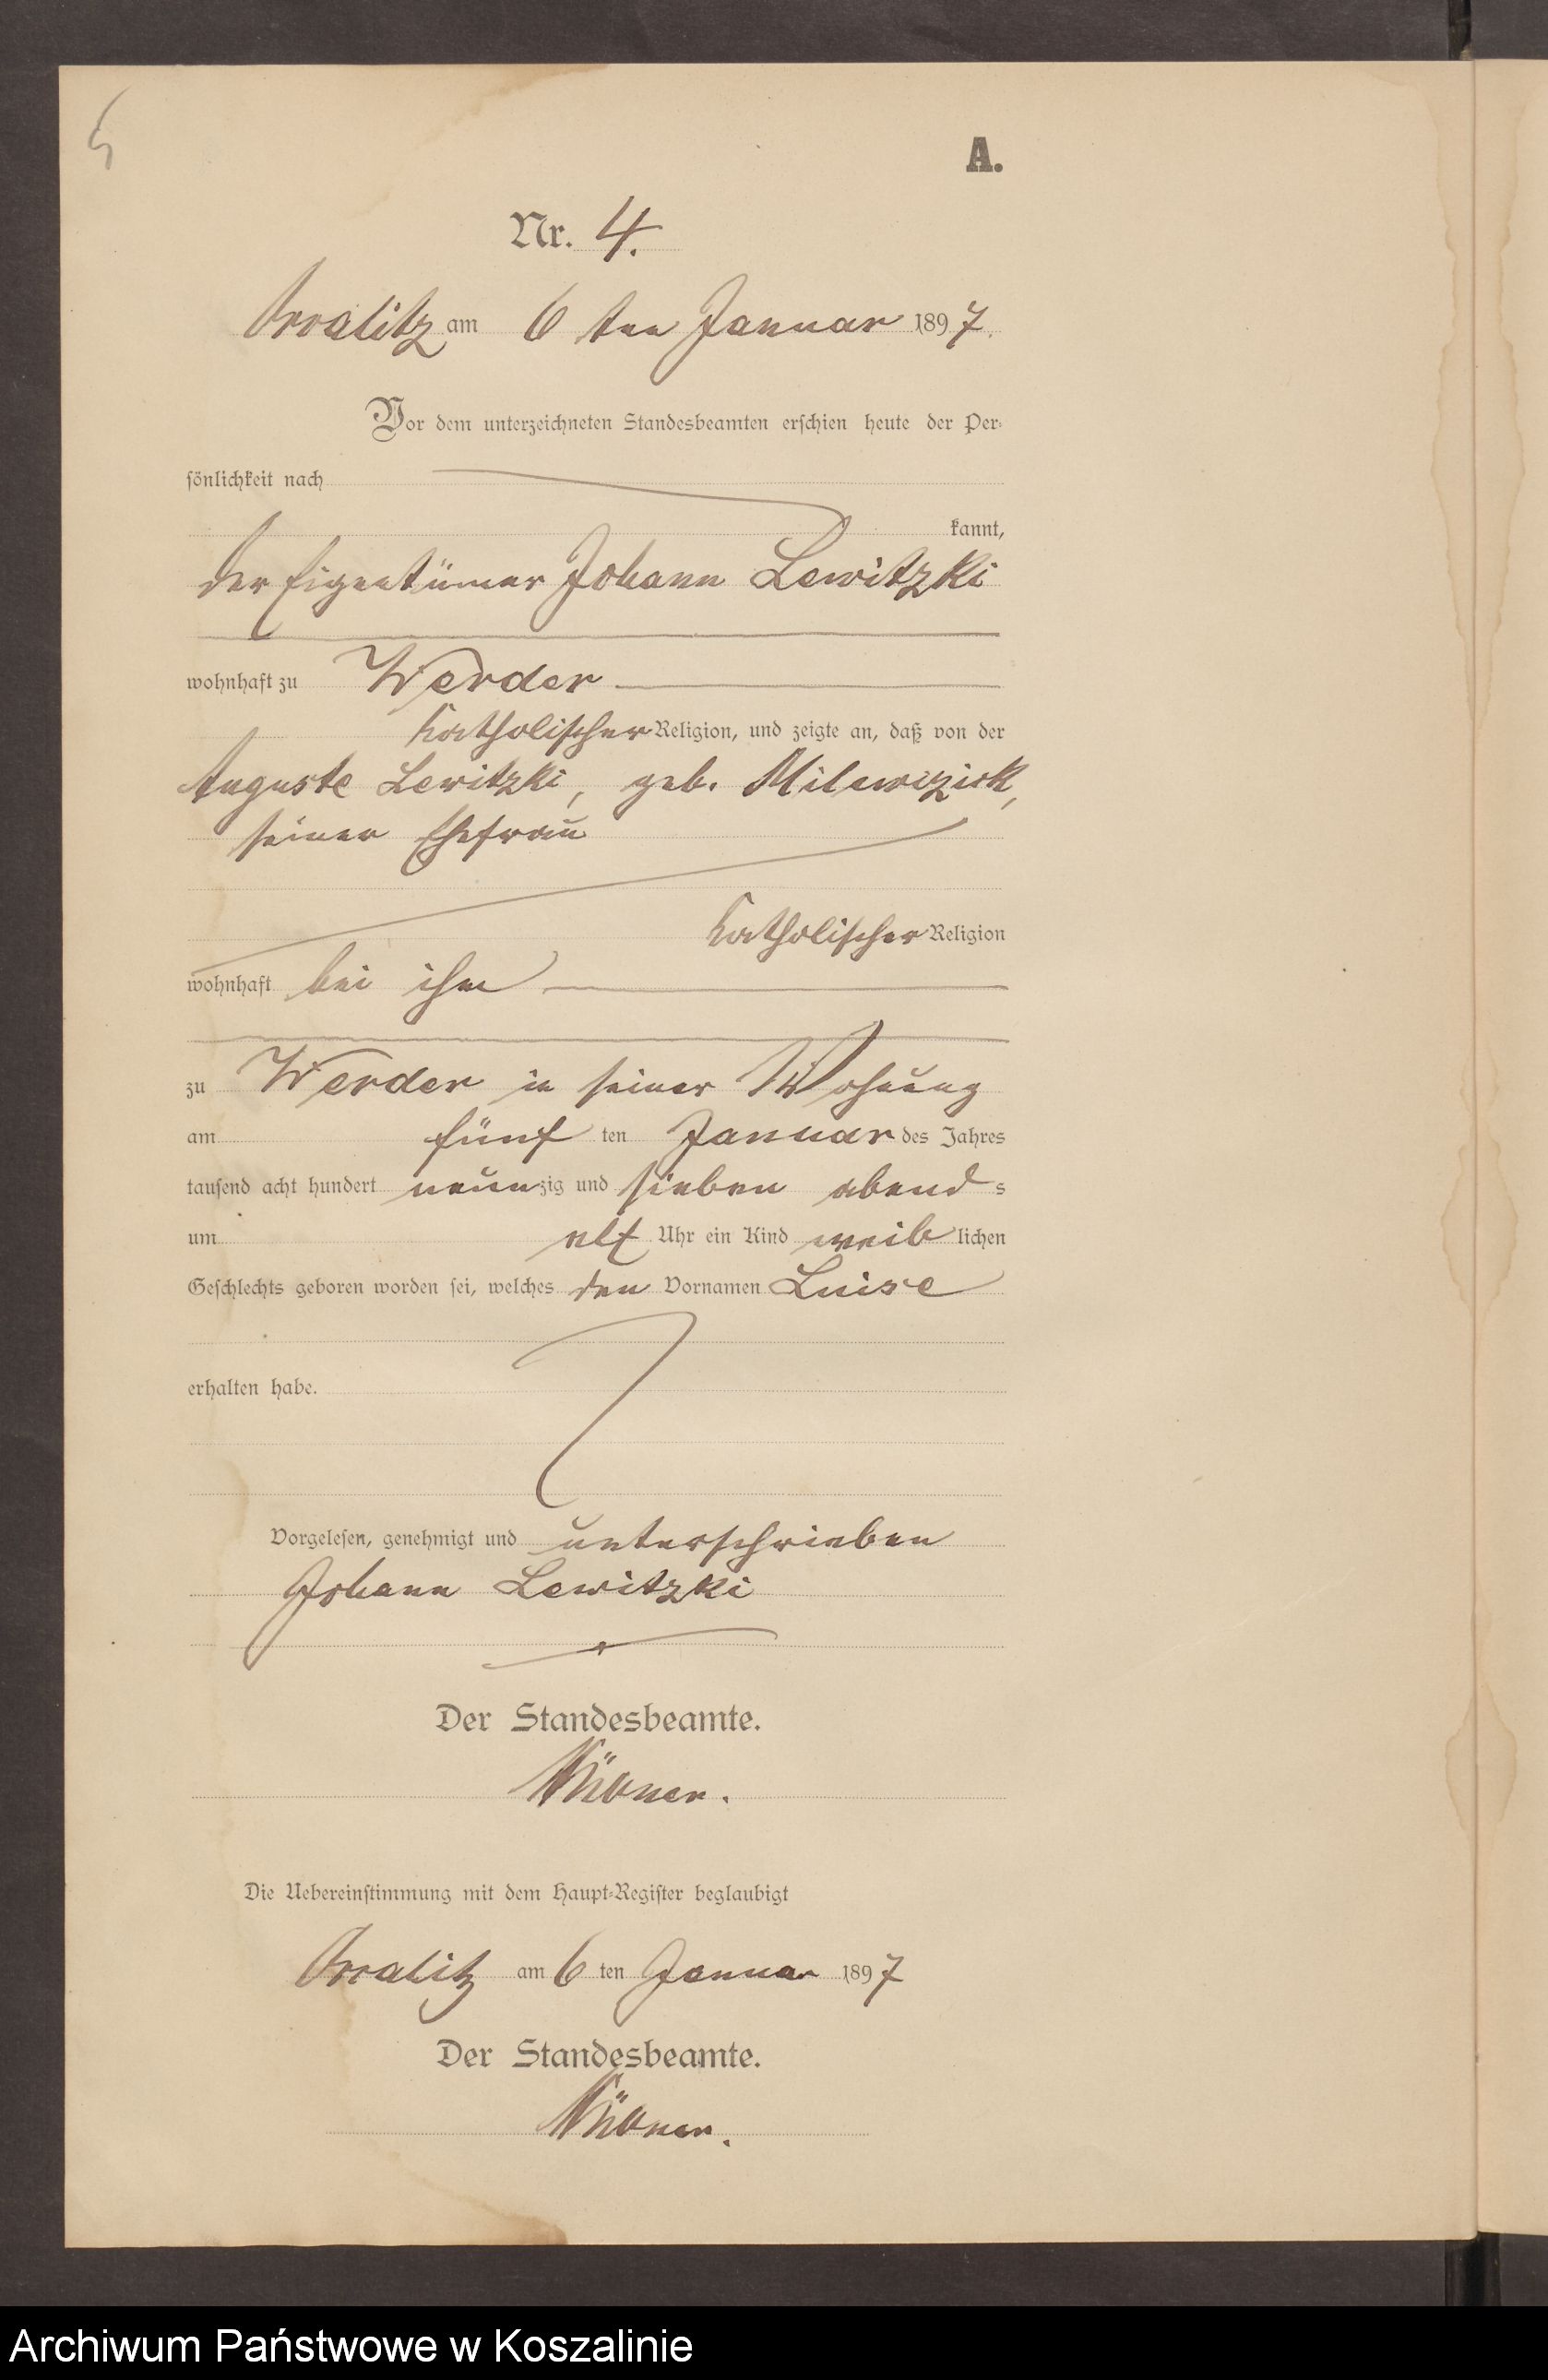 5
A.
Nr. 4.
am 6 ten Januar 1897.
Vor dem unterzeichneten Standesbeamten erschien heute der Per-
sönlichkeit nach
kannt,
der Eigentümer Johann Lewitzki
wohnhaft zu Werder
katholischer Religion, und zeigte an, daß von der
Auguste Lewitzki, geb.
seiner Ehefrau
katholischer Religion
wohnhaft bei ihm
zu Werder in seiner Wohnung
am fünf ten Januar des Jahres
tausend acht hundert neunzig und sieben abends
um elf Uhr ein Kind weiblichen
Geschlechts geboren worden sei, welches den Vornamen Luise
erhalten habe.
Vorgelesen, genehmigt und unterschrieben
Johann Lewitzki
Der Standesbeamte.
Die Uebereinstimmung mit dem Haupt-Register beglaubigt
am 6 ten Januar 1897
Der Standesbeamte.
Archiwum Państwowe w Koszalinie